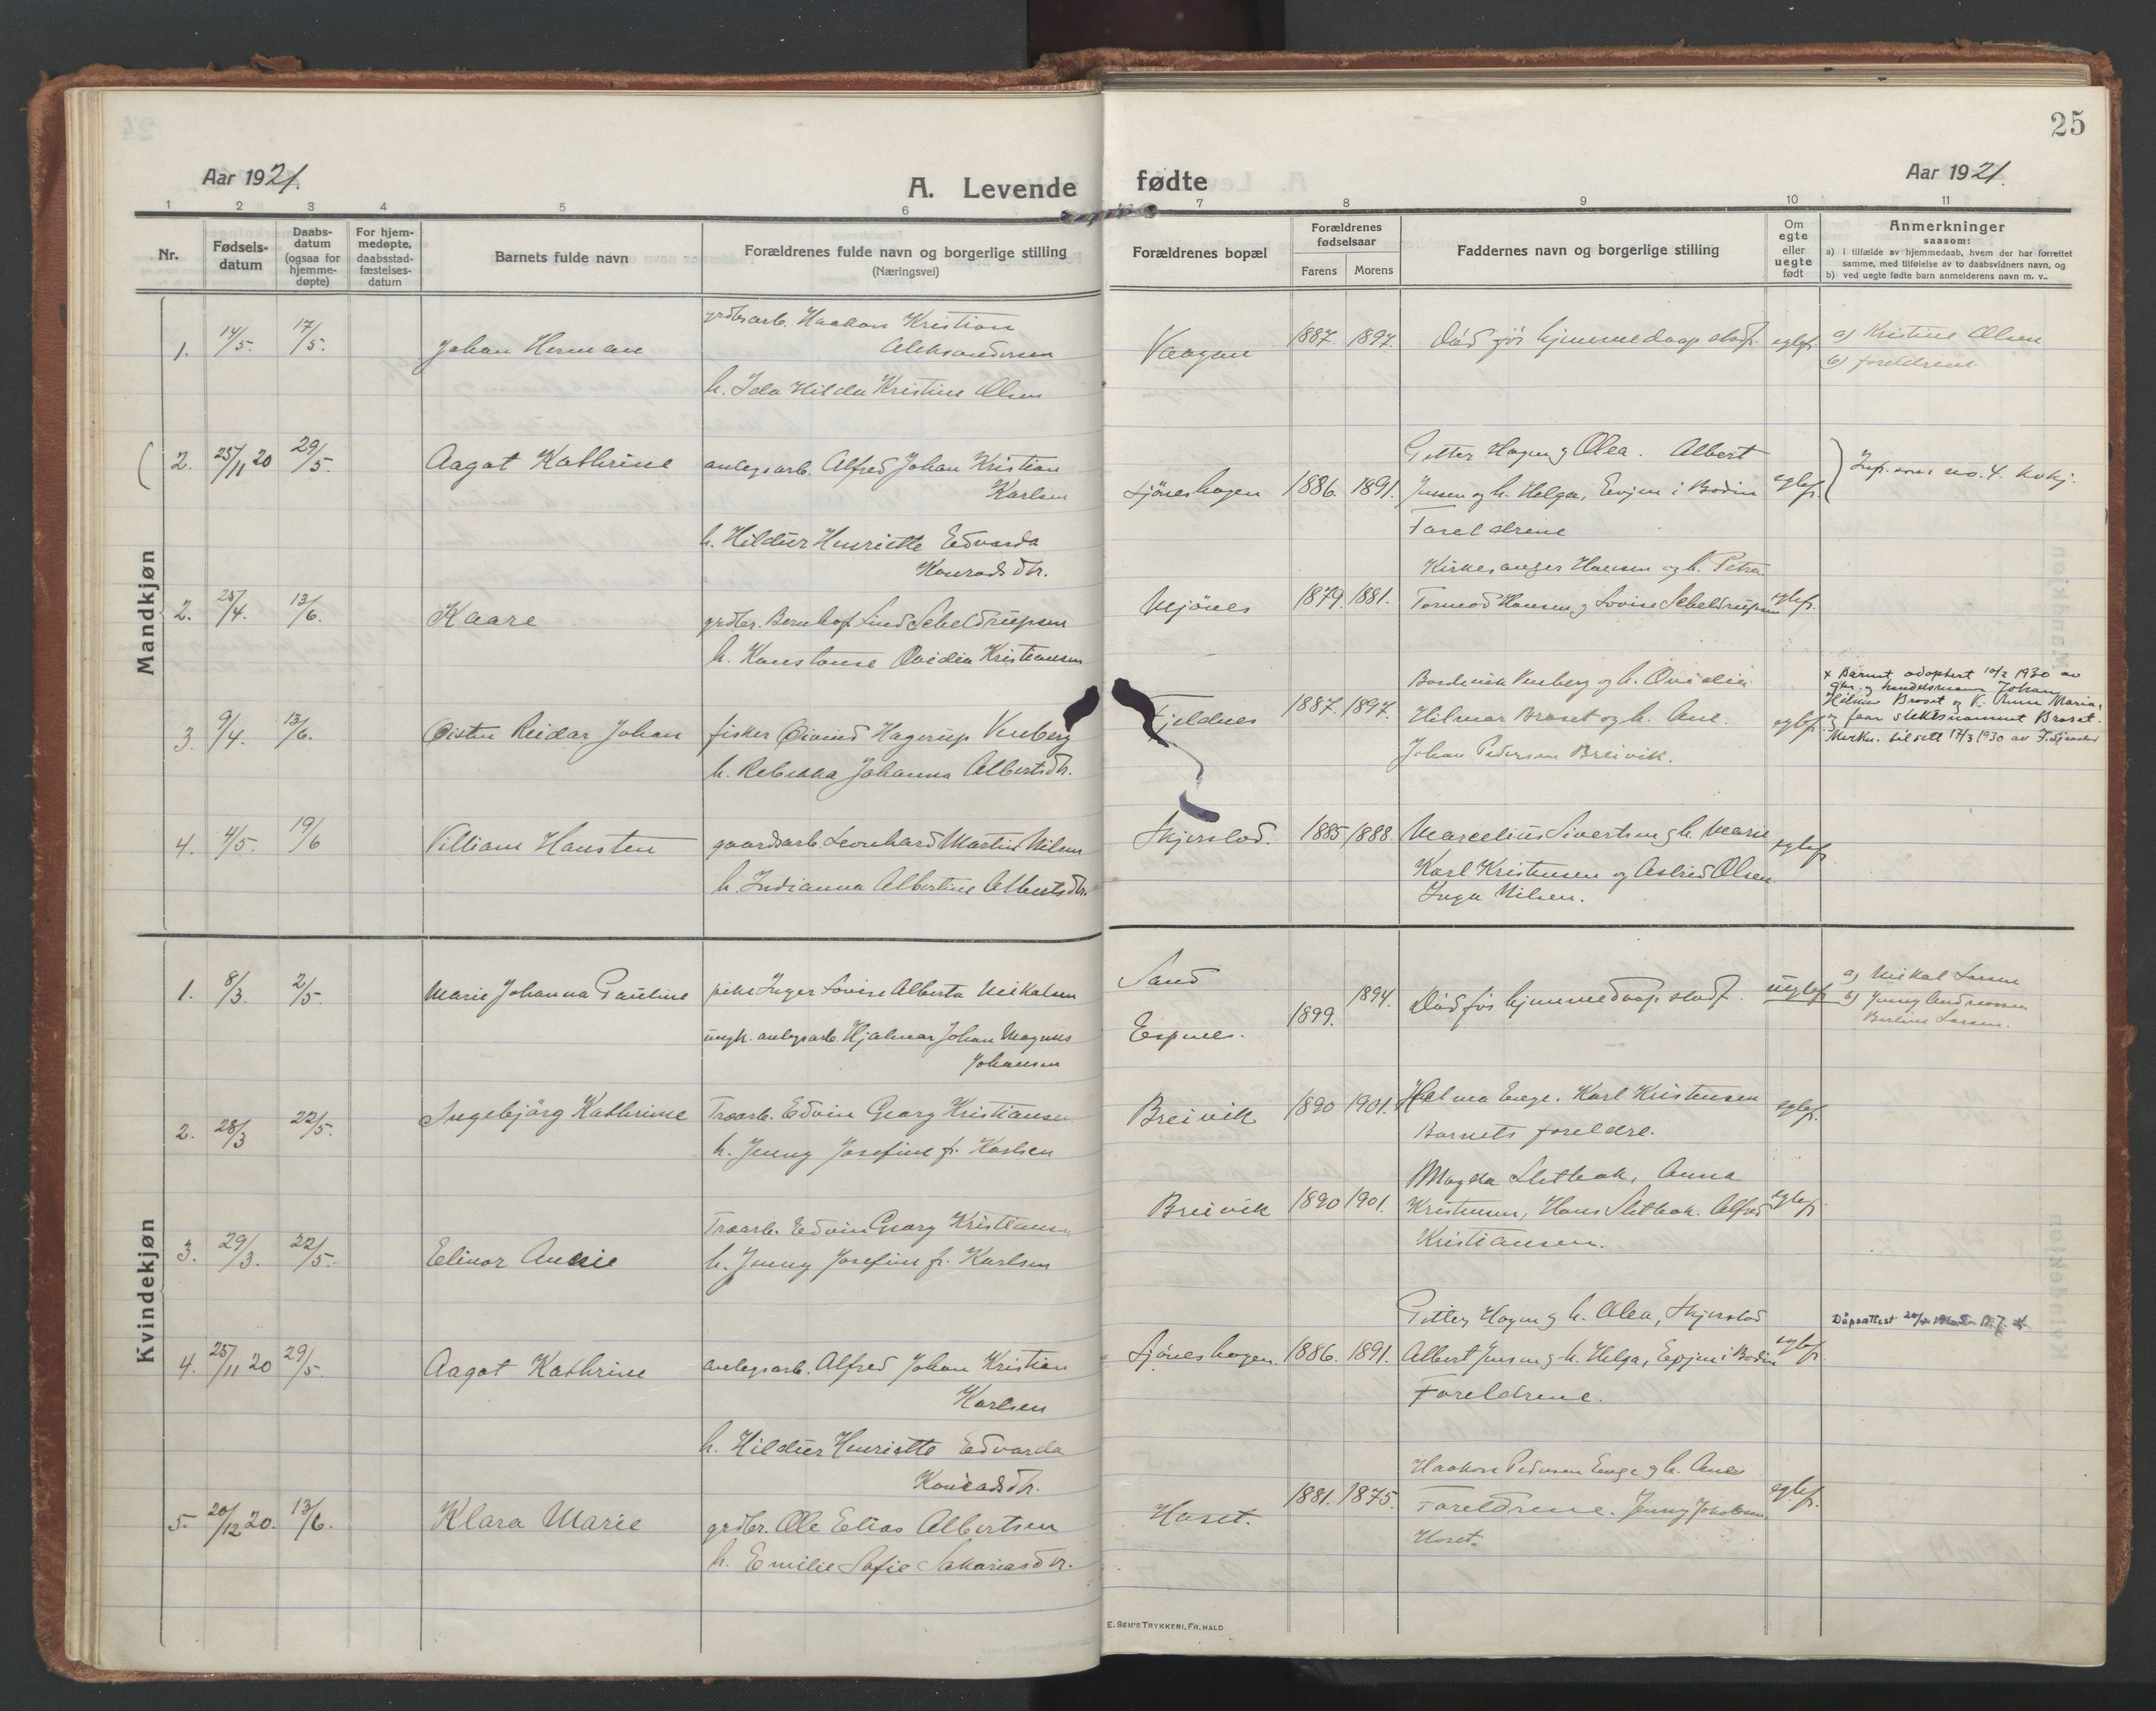 25
Aar 1921.
A. Levende fødte
Aar 1921.
1 2 3 4 5 6 7 8 9 10 11
Nr.
Fødsels-
datum
Daabs-
datum
(ogsaa for
hjemme-
døpte)
For hjem-
medøpte,
daabsstad-
fæstelses-
datum
Barnets fulde navn
Forældrenes fulde navn og borgerlige stilling
(Næringsvei)
Forældrenes bopæl
Forældrenes
fødselsaar
Farens Morens
Faddernes navn og borgerlige stilling
Om
egte
eller
uegte
født
Anmerkninger
saasom:
a) i tilfælde av hjemmedaab, hvem der har forrettet
samme, med tilføielse av to daabsvidners navn, og
b) ved uegte fødte barn anmelderens navn m. v..
Mandkjøn
1. 14/5. 17/5. Johan Herman
grdbrarb. Haakon Kristian
Aleksandersen
h. Ida Hilda Kristine Olsen
Vaagan 1887. 1897. Död för hjemmedaap stadf. egtef.
a) Kristine Olsen
b) foreldrene.
2. 25/11 20 29/5. Aagot Kathrine
anlegsarb. Alfred Johan Kristian
Karlsen
h. Hildur Henriette Edvarda
Konradsdtr.
Sjöneshagen 1886. 1891.
Petter Hagen og Olea. Albert
Jensen og h. Helga, Evjen i Bodin
Foreldrene
egtef.
Inf. som no. 4. kvkj.
2. 25/4. 13/6. Kaare
grdbr. Bernhof Lind Scheldrupsen
h. Konstanse Ovidia Kristiansen
Mjönes 1879. 1881.
Kirkesanger Hansen og h. Petra.
Tormod Hansen og Lovise Scheldrupsen
egtef.
3. 9/4. 13/6. Öisten Reidar Johan
fisker Öivind Hagerup Venberg
h. Rebekka Johanna Albertsdtr.
Fjeldnes 1887. 1897.
Venberg og h. Ovidia
Hilmar Broset og h. Ane.
Johan Pedersen Breivik.
egtef.
x Barnet adoptert 10/2 1930 av
gbr. og handelsmann Johan
Hilmar Broset og h. Anna Maria,
og faar slektsnavnet Broset.
Merkn. tilsett 17/3 1930 av
4. 4/5. 19/6 Villiam Hansten
gaardsarb. Leonhard Martin Nilsen
h. Indianna Albertine Albertsdtr.
Skjerstad. 1885 1888.
Marcelius Sivertsen og h. Marie
Karl Kristensen og Astrid Olsen
Inga Nilsen.
egtef.
Kvindekjøn
1. 8/3. 2/5. Marie Johanna Pauline
pike Inger Lovise Alberta Mikalsen
ungk. anlegsarb. Hjalmar Johan Magnus
Johansen
Sand
Espnes.
1899. 1894.
Död för hjemmedaap stadf. uegtef
a) Mikal Larsen
b) Jenny Andreassen
Berline Larsen.
2. 28/3 22/5. Ingebjörg Kathrine
Traarb. Edvin Georg Kristiansen
h. Jenny Josefine f. Karlsen
Breivik 1890 1901.
Halma Enge. Karl Kristensen
Barnets foreldre.
egtef.
3. 29/3. 22/5. Elinor Annie
Traarb. Edvin Georg Kristiansen
h. Jenny Josefine f. Karlsen
Breivik 1890 1901.
Magda Sletbak, Anna
Kristensen, Hans Sletbak. Alfred
Kristiansen.
egtef.
4. 25/11 20 29/5. Aagot Kathrine
anlegsarb. Alfred Johan Kristian
Karlsen
h. Hildur Henriette Edvarda
Konradsdtr.
Sjöneshagen. 1886. 1891.
Petter Hagen og h. Olea, Skjerstad
Albert Jensen og h. Helga, Evjen i Bodin
Foreldrene.
egtef.
Dåpsattest
5. 20/12 20. 13/6. Klara Marie
grdbr. Ole Elias Albertsen
h. Emilie Sofie Sakariasdtr.
Hoset. 1881. 1875.
Haakon Pedersen Enge og h. Anna
Foreldrene. Jenny Jakobsen
Hoset.
egtef.
E. SEM'S TRYKKERI, FR.HALD